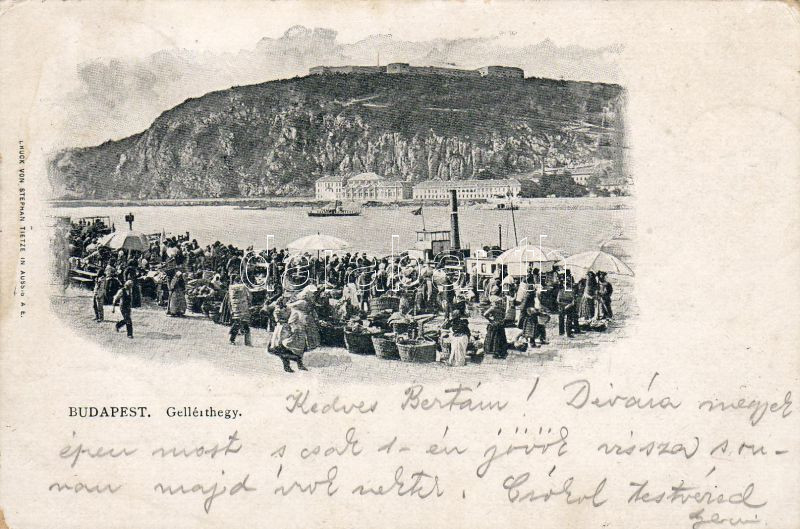 DRUCK VON STEPHAN TIETZE IN AUSSIG A E.
darabanth.com
BUDAPEST. Gellérthegy.
Kedves Bertám! Dévára megyek
épen most s csak 1-én jövök vissza son-
nan majd írok nektek. Csókol testvéred